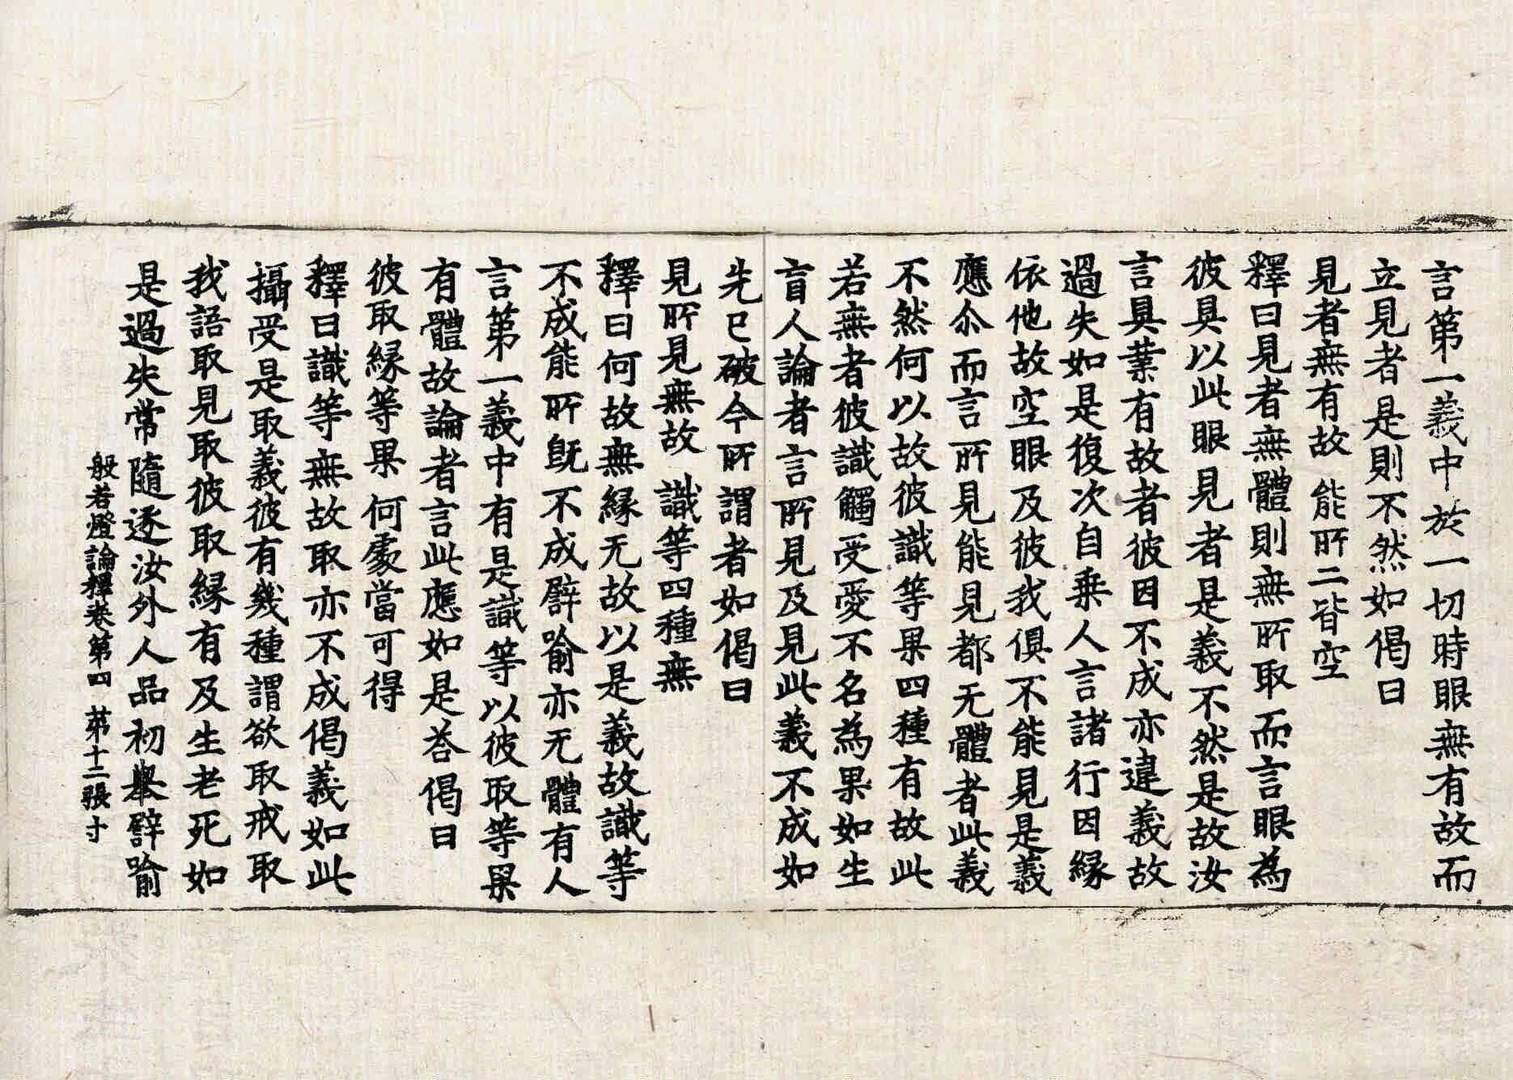 言第一義中於一切時眼無有故而
立見者是則不然如偈曰
見者無有故 能所二皆空
釋曰見者無體則無所取而言眼為
彼具以此眼見者是義不然是故汝
言具業有故者彼因不成亦違義故
過失如是復次自乗人言諸行因縁
依他故空眼及彼我俱不能見是義
應尒而言所見能見都无體者此義
不然何以故彼識等果四種有故此
若無者彼識觸受愛不名為果如生
盲人論者言所見及見此義不成如
先已破今所謂者如偈曰
見所見無故 識等四種無
釋曰何故無縁无故以是義故識等
不成能所既不成譬喻亦无體有人
言第一義中有是識等以彼取等果
有體故論者言此應如是荅偈曰
彼取縁等果 何處當可得
釋曰識等無故取亦不成偈義如此
攝受是取義彼有幾種謂欲取戒取
我語取見取彼取縁有及生老死如
是過失常隨逐汝外人品初舉譬喻
般若燈論釋卷第四 第十二張 寸